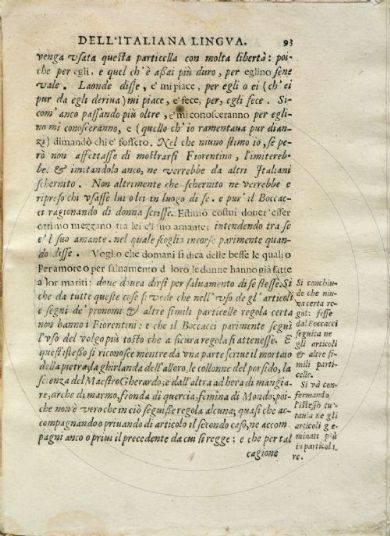 DELL'ITALIANA LINGVA. 93
venga vsata questa particella con molta libertà: poi-
che per egli. e quel ch'è assai più duro, per eglino sene
vale. Laonde disse, e' mi piace, per egli o ei (ch'ei
pur da egli deriua) mi piace, e' fece, per, egli fece. Si-
com' anco passando più oltre, e' mi conosceranno per egli-
no mi conosceranno, e (quello ch'io ramentaua pur dian-
zi) dimandò chi e' fossero. Nel che niuno stimo io, se pe-
rò non affettasse di mostrarsi Fiorentino, l'imitereb-
be. & imitandolo anco, ne verrebbe da altri Italiani
schernito. Non altrimente che schernito ne verrebbe e
ripreso chi vsasse lui olei in luogo di se. e pur'il Bocac-
ci ragionando di donna scrisse. Estimò costui douer esser
ottimo mezzano tra lei e'l suo amante; intendendo tra se
e'l suo amante. nel quale scoglio incorse parimente quan-
do disse. Voglio che domani si dica delle beffe le quali o
Per amore o per saluamento di loro le donne hanno già fatte
a lor mariti: doue douea dirsi per saluamento di se stesse. Si
che da tutte queste cose si vede che nell'vso de gl'articoli
e segni de' pronomi & altre simili particelle regola certa
non hanno i Fiorentini: e che il Boccacci parimente seguì
l'vso del volgo più tosto che a sicura regola si attenesse. E
questistesso si riconosce mentre da vna parte scrisse il mortaio
della pietra, la ghirlanda dell'alloro, le collonne del porfido, la
scienza del Maestro Gherardo; e dall'altra ad hora di mangia-
re, arche di marmo, fronda di quercia, femina di Mondo; poi-
che non è vero che in ciò seguisse regola alcuna; quasi che ac-
compagnando o priuando di articolo il secondo caso, ne accom
pagni anco o priui il precedente da cui si regge: e che per tal
cagione
Si conchiu-
de che niu-
na certa re-
gola: fosse
dal Boccacci
seguita ne
gli articoli
& altre si-
mili parti-
celle.
Si và con-
fermando
l'istesso
ne gli
articoli
più
in particola-
re.